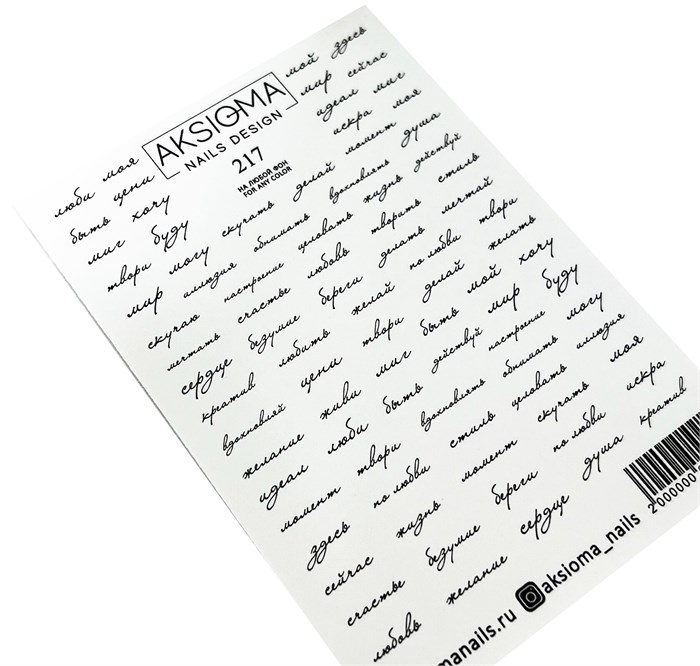 люби моя
AKSIOMA
NAILS DESIGN
217
НА ЛЮБОЙ ФОН
FOR ANY COLOR
мой здесь
быть цени мир сейчас
миг хочу идеал миг
твори буду искра моя
мир могу скучать делай момент душа
скучаю иллюзия обнимать вдохновлять действуй
мечтать настроение целовать жизнь стиль
сердце счастье любовь творить мечтай
креатив безумие береги делать твори
вдохновляй любить желай по любви желать
желание цени твори делай мой хочу
идеал живи миг быть мир буду
момент люби быть действуй настроение могу
здесь твори вдохновлять обнимать иллюзия
сейчас по любви стиль целовать моя
счастье жизнь момент скучать искра
любовь безумие береги по любви креатив
желание сердце душа
manails.ru aksioma_nails
2000000